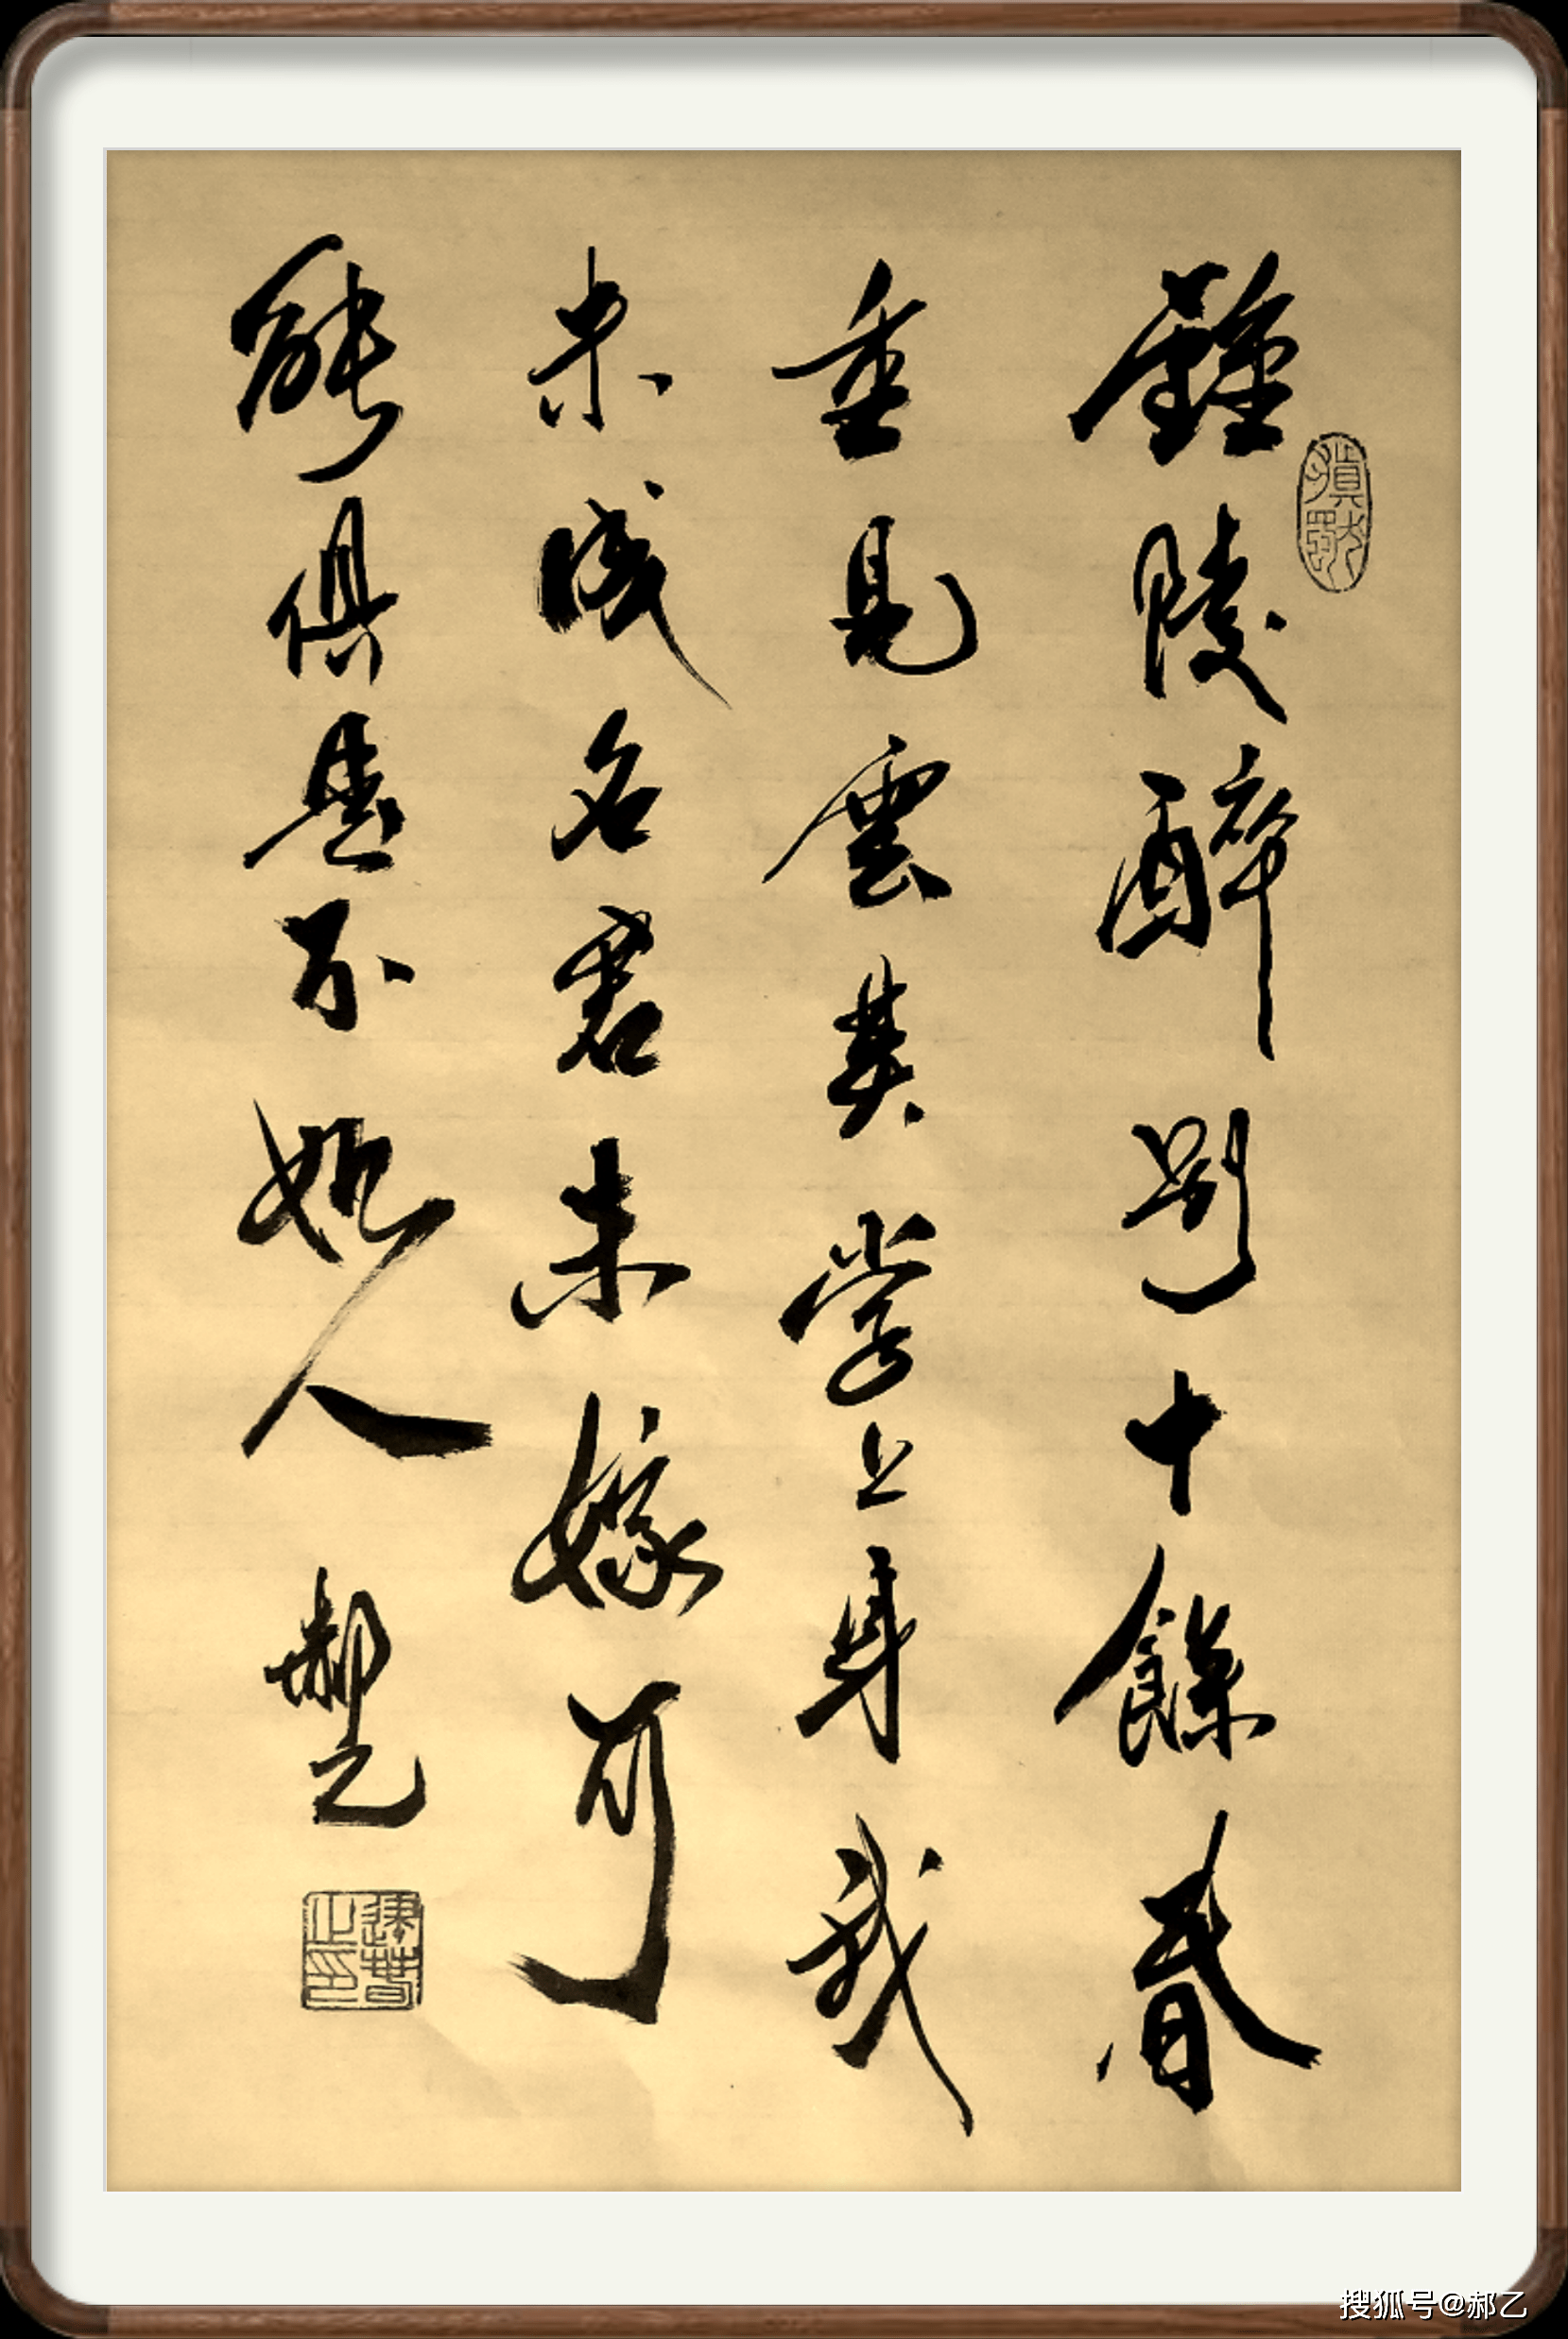 鍾陵醉別十餘春
重見雲英掌上身我
未成名君未嫁可
能俱是不如人 郝乙
搜狐号@郝乙